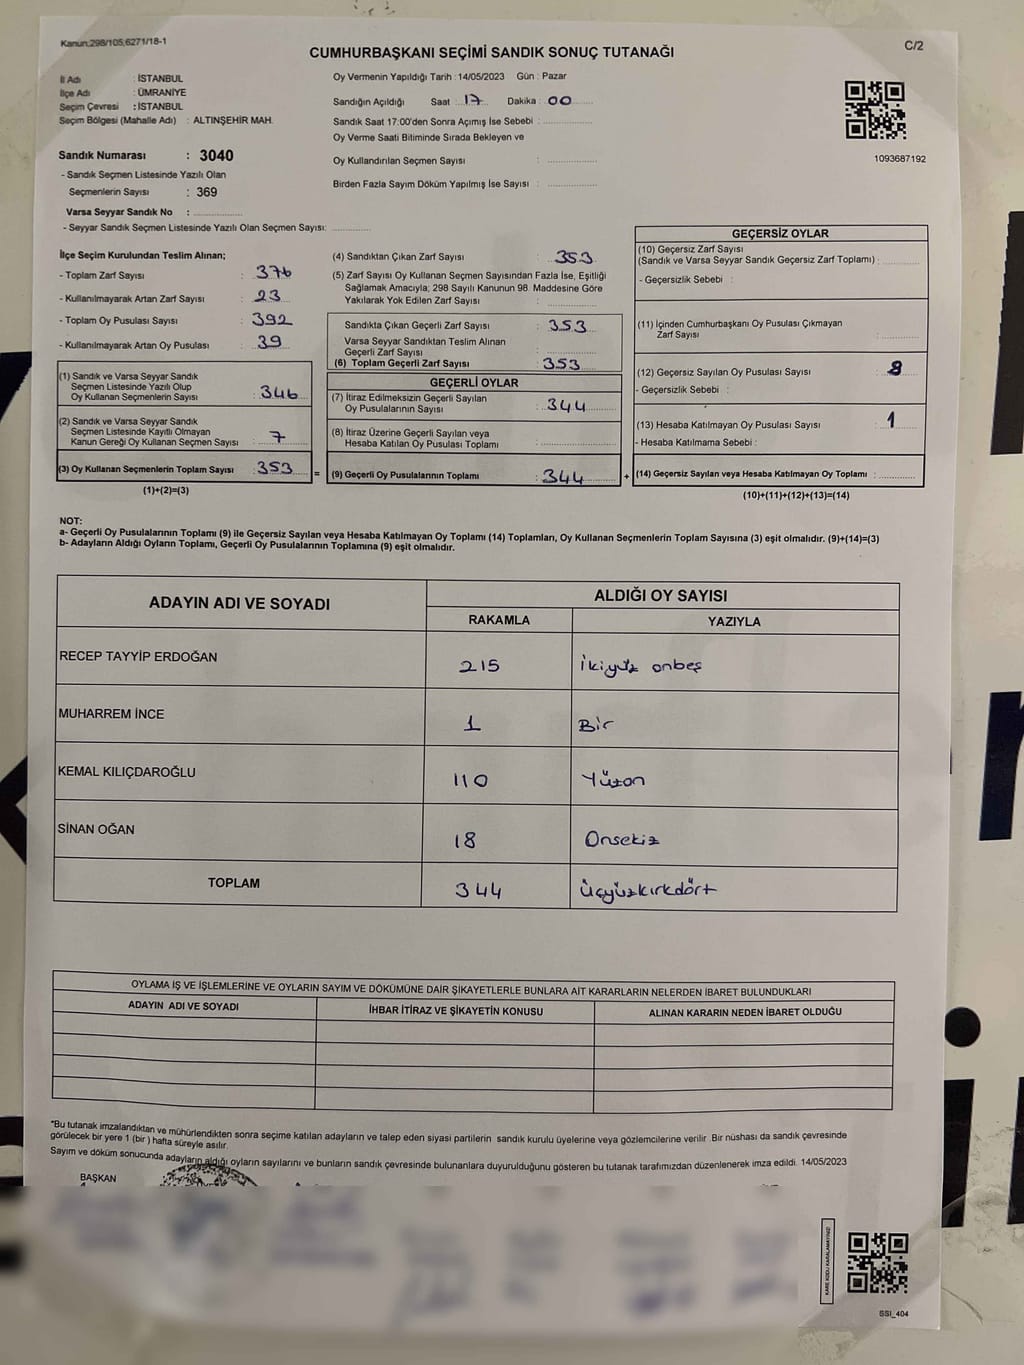 Kanun;298/105;6271/18-1
CUMHURBAŞKANI SEÇİMİ SANDIK SONUÇ TUTANAĞI
C/2
İl Adı : İSTANBUL
İlçe Adı : ÜMRANİYE
Seçim Çevresi : İSTANBUL
Seçim Bölgesi (Mahalle Adı) : ALTINŞEHİR MAH.
Sandık Numarası : 3040
- Sandık Seçmen Listesinde Yazılı Olan
Seçmenlerin Sayısı : 369
Varsa Seyyar Sandık No : ............
- Seyyar Sandık Seçmen Listesinde Yazılı Olan Seçmen Sayısı: ............
Oy Vermenin Yapıldığı Tarih :14/05/2023 Gün : Pazar
Sandığın Açıldığı Saat : 17 Dakika : 00
Sandık Saat 17:00'den Sonra Açımış İse Sebebi : ............
Oy Verme Saati Bitiminde Sırada Bekleyen ve
Oy Kullandırılan Seçmen Sayısı : ............
Birden Fazla Sayım Döküm Yapılmış İse Sayısı : ............
1093687192
İlçe Seçim Kurulundan Teslim Alınan;
- Toplam Zarf Sayısı : 376
- Kullanılmayarak Artan Zarf Sayısı : 23
- Toplam Oy Pusulası Sayısı : 392
- Kullanılmayarak Artan Oy Pusulası : 39
(1) Sandık ve Varsa Seyyar Sandık
Seçmen Listesinde Yazılı Olup
Oy Kullanan Seçmenlerin Sayısı : 346
(2) Sandık ve Varsa Seyyar Sandık
Seçmen Listesinde Kayıtlı Olmayan
Kanun Gereği Oy Kullanan Seçmen Sayısı : 7
(3) Oy Kullanan Seçmenlerin Toplam Sayısı : 353 =
(1)+(2)=(3)
(4) Sandıktan Çıkan Zarf Sayısı : 353
(5) Zarf Sayısı Oy Kullanan Seçmen Sayısından Fazla İse, Eşitliği
Sağlamak Amacıyla; 298 Sayılı Kanunun 98. Maddesine Göre
Yakılarak Yok Edilen Zarf Sayısı : ............
Sandıkta Çıkan Geçerli Zarf Sayısı : 353
Varsa Seyyar Sandıktan Teslim Alınan
Geçerli Zarf Sayısı : ............
(6) Toplam Geçerli Zarf Sayısı : 353
GEÇERLİ OYLAR
(7) İtiraz Edilmeksizin Geçerli Sayılan
Oy Pusulalarının Sayısı : 344
(8) İtiraz Üzerine Geçerli Sayılan veya
Hesaba Katılan Oy Pusulası Toplamı : ............
(9) Geçerli Oy Pusulalarının Toplamı : 344 +
GEÇERSİZ OYLAR
(10) Geçersiz Zarf Sayısı
(Sandık ve Varsa Seyyar Sandık Geçersiz Zarf Toplamı) : ............
- Geçersizlik Sebebi :
(11) İçinden Cumhurbaşkanı Oy Pusulası Çıkmayan
Zarf Sayısı : ............
(12) Geçersiz Sayılan Oy Pusulası Sayısı : 8
- Geçersizlik Sebebi :
(13) Hesaba Katılmayan Oy Pusulası Sayısı : 1
- Hesaba Katılmama Sebebi :
(14) Geçersiz Sayılan veya Hesaba Katılmayan Oy Toplamı : ............
(10)+(11)+(12)+(13)=(14)
NOT:
a- Geçerli Oy Pusulalarının Toplamı (9) ile Geçersiz Sayılan veya Hesaba Katılmayan Oy Toplamı (14) Toplamları, Oy Kullanan Seçmenlerin Toplam Sayısına (3) eşit olmalıdır. (9)+(14)=(3)
b- Adayların Aldığı Oyların Toplamı, Geçerli Oy Pusulalarının Toplamına (9) eşit olmalıdır.
ADAYIN ADI VE SOYADI ALDIĞI OY SAYISI
RAKAMLA YAZIYLA
RECEP TAYYİP ERDOĞAN 215 İkiyüz onbeş
MUHARREM İNCE 1 Bir
KEMAL KILIÇDAROĞLU 110 Yüzon
SİNAN OĞAN 18 Onsekiz
TOPLAM 344 Üçyüzkırkdört
OYLAMA İŞ VE İŞLEMLERİNE VE OYLARIN SAYIM VE DÖKÜMÜNE DAİR ŞİKAYETLERLE BUNLARA AİT KARARLARIN NELERDEN İBARET BULUNDUKLARI
ADAYIN ADI VE SOYADI İHBAR İTİRAZ VE ŞİKAYETİN KONUSU ALINAN KARARIN NEDEN İBARET OLDUĞU
*Bu tutanak imzalandıktan ve mühürlendikten sonra seçime katılan adayların ve talep eden siyasi partilerin sandık kurulu üyelerine veya gözlemcilerine verilir. Bir nüshası da sandık çevresinde
görülecek bir yere 1 (bir ) hafta süreyle asılır.
Sayım ve döküm sonucunda adayların aldığı oyların sayılarını ve bunların sandık çevresinde bulunanlara duyurulduğunu gösteren bu tutanak tarafımızdan düzenlenerek imza edildi. 14/05/2023
BAŞKAN
KARE KODU KARALAMAYINIZ!
SSI_404